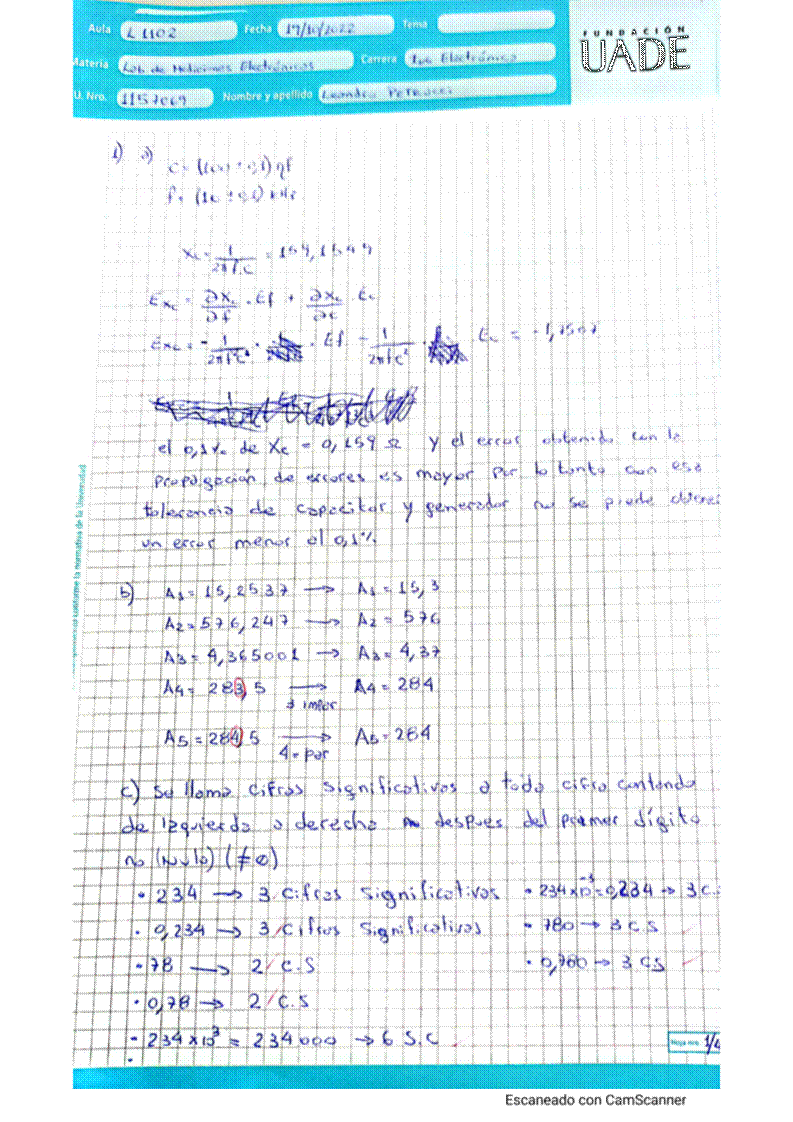 Aula L1102 Fecha 19/10/2022 Tema
FUNDACIÓN
UADE
Materia Lab de Mediciones Electrónicas Carrera Ing. Electrónica
U. Nro. 1157069 Nombre y apellido Leandro Petrucci
1) a) C = (100 ± 0,1) nf
f = (10 ± 0,1) kHz
Xc = 1/2πf.C = 159,1549
Exc = ∂Xc/∂f . Ef + ∂Xc/∂c . Ec
Exc = - 1/2πf²c . Ef - 1/2πfc² . Ec = -1,7507
el 0,1% de Xc = 0,159 Ω y el error obtenido con la
propagación de errores es mayor por lo tanto con esa
tolerancia de capacitor y generador no se puede obtener
un error menor al 0,1%
conforme la normativa de la Universidad
b) A1 = 15,2537 → A1 = 15,3
A2 = 576,247 → A2 = 576
A3 = 4,365001 → A3 = 4,37
A4 = 283,5 → A4 = 284
3 impar
A5 = 284,5 → A5 = 284
4 = par
c) Se llama cifras significativas a toda cifra contando
de izquierda a derecha despues del primer dígito
no (nulo) (≠0)
• 234 → 3 cifras significativas • 234x10⁻³=0,234 → 3 C.S
• 0,234 → 3 cifras significativas • 780 → 3 C.S
• 78 → 2 C.S • 0,780 → 3 C.S
• 0,78 → 2 C.S
• 234x10³ = 234000 → 6 S.C
•
Hoja nro. 1/4
Escaneado con CamScanner